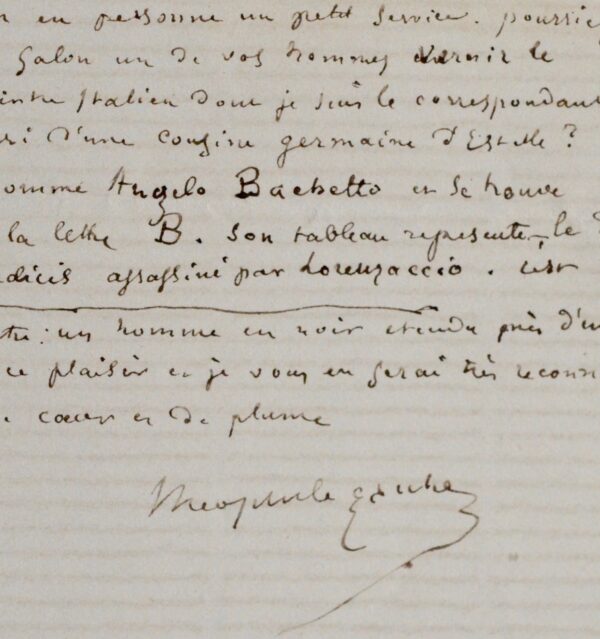 en personne un petit service. pourrie
Salon un de vos hommes vernir le
intre Italien dont je suis le correspondant
ri d'une cousine germaine d'Estelle ?
omme Angelo Bachetto et se trouve
la lettre B. son tableau represente le
dicis assassiné par Lorenzaccio. c'est
tre : un homme en noir etendu près d'un
ce plaisir et je vous en serai très reconn
cœur et de plume
Theophile Gautier